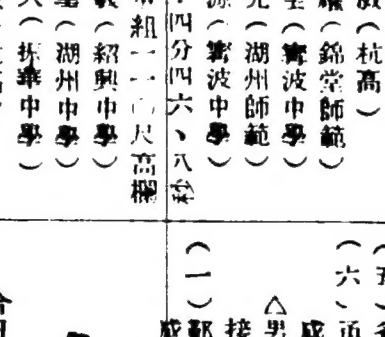 （杭高）
（錦堂師範）
（寧波中學）
（湖州師範）
源（寧波中學）
四分四六、八秒
組一一〇尺高欄
（紹興中學）
（湖州中學）
（振華中學）
（五
（六）
成
△男
接
（一）